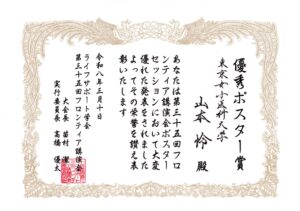 優秀ポスター賞
山本 怜 殿
あなたは第三十五回フロ
ンティア講演会ポスター
セッションにおいて大変
優れた発表をされました
よってその栄誉を讃え表
彰いたします
令和八年三月十日
ライフサポート学会
第三十五回フロンティア講演会
大会長 苗村 潔
実行委員長 高橋 優太